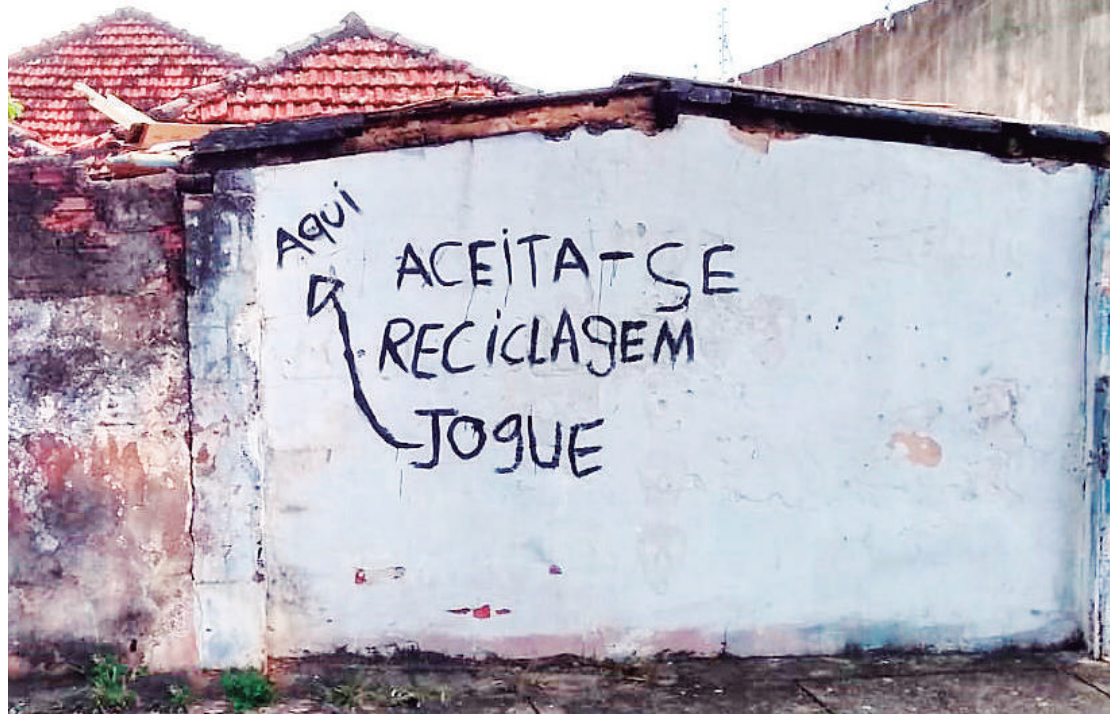 Aqui
ACEITA-SE
RECICLAGEM
JOGUE